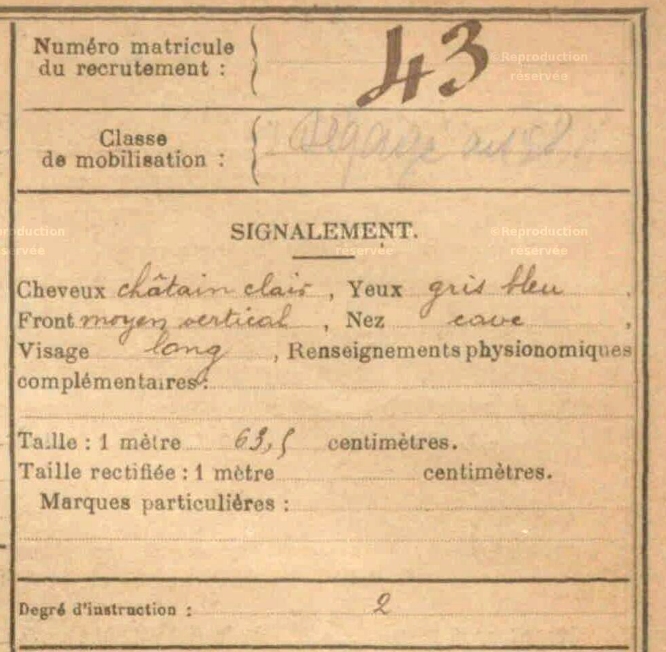 Numéro matricule
du recrutement : 43
Classe
de mobilisation :
SIGNALEMENT.
Cheveux châtain clair , Yeux gris bleu ,
Front moyen vertical , Nez cave ,
Visage long , Renseignements physionomiques
complémentaires :
Taille : 1 mètre 63,5 centimètres.
Taille rectifiée : 1 mètre centimètres.
Marques particulières :
Degré d'instruction : 2
Reproduction
réservée
©Reproduction
réservée
Reproduction
servée